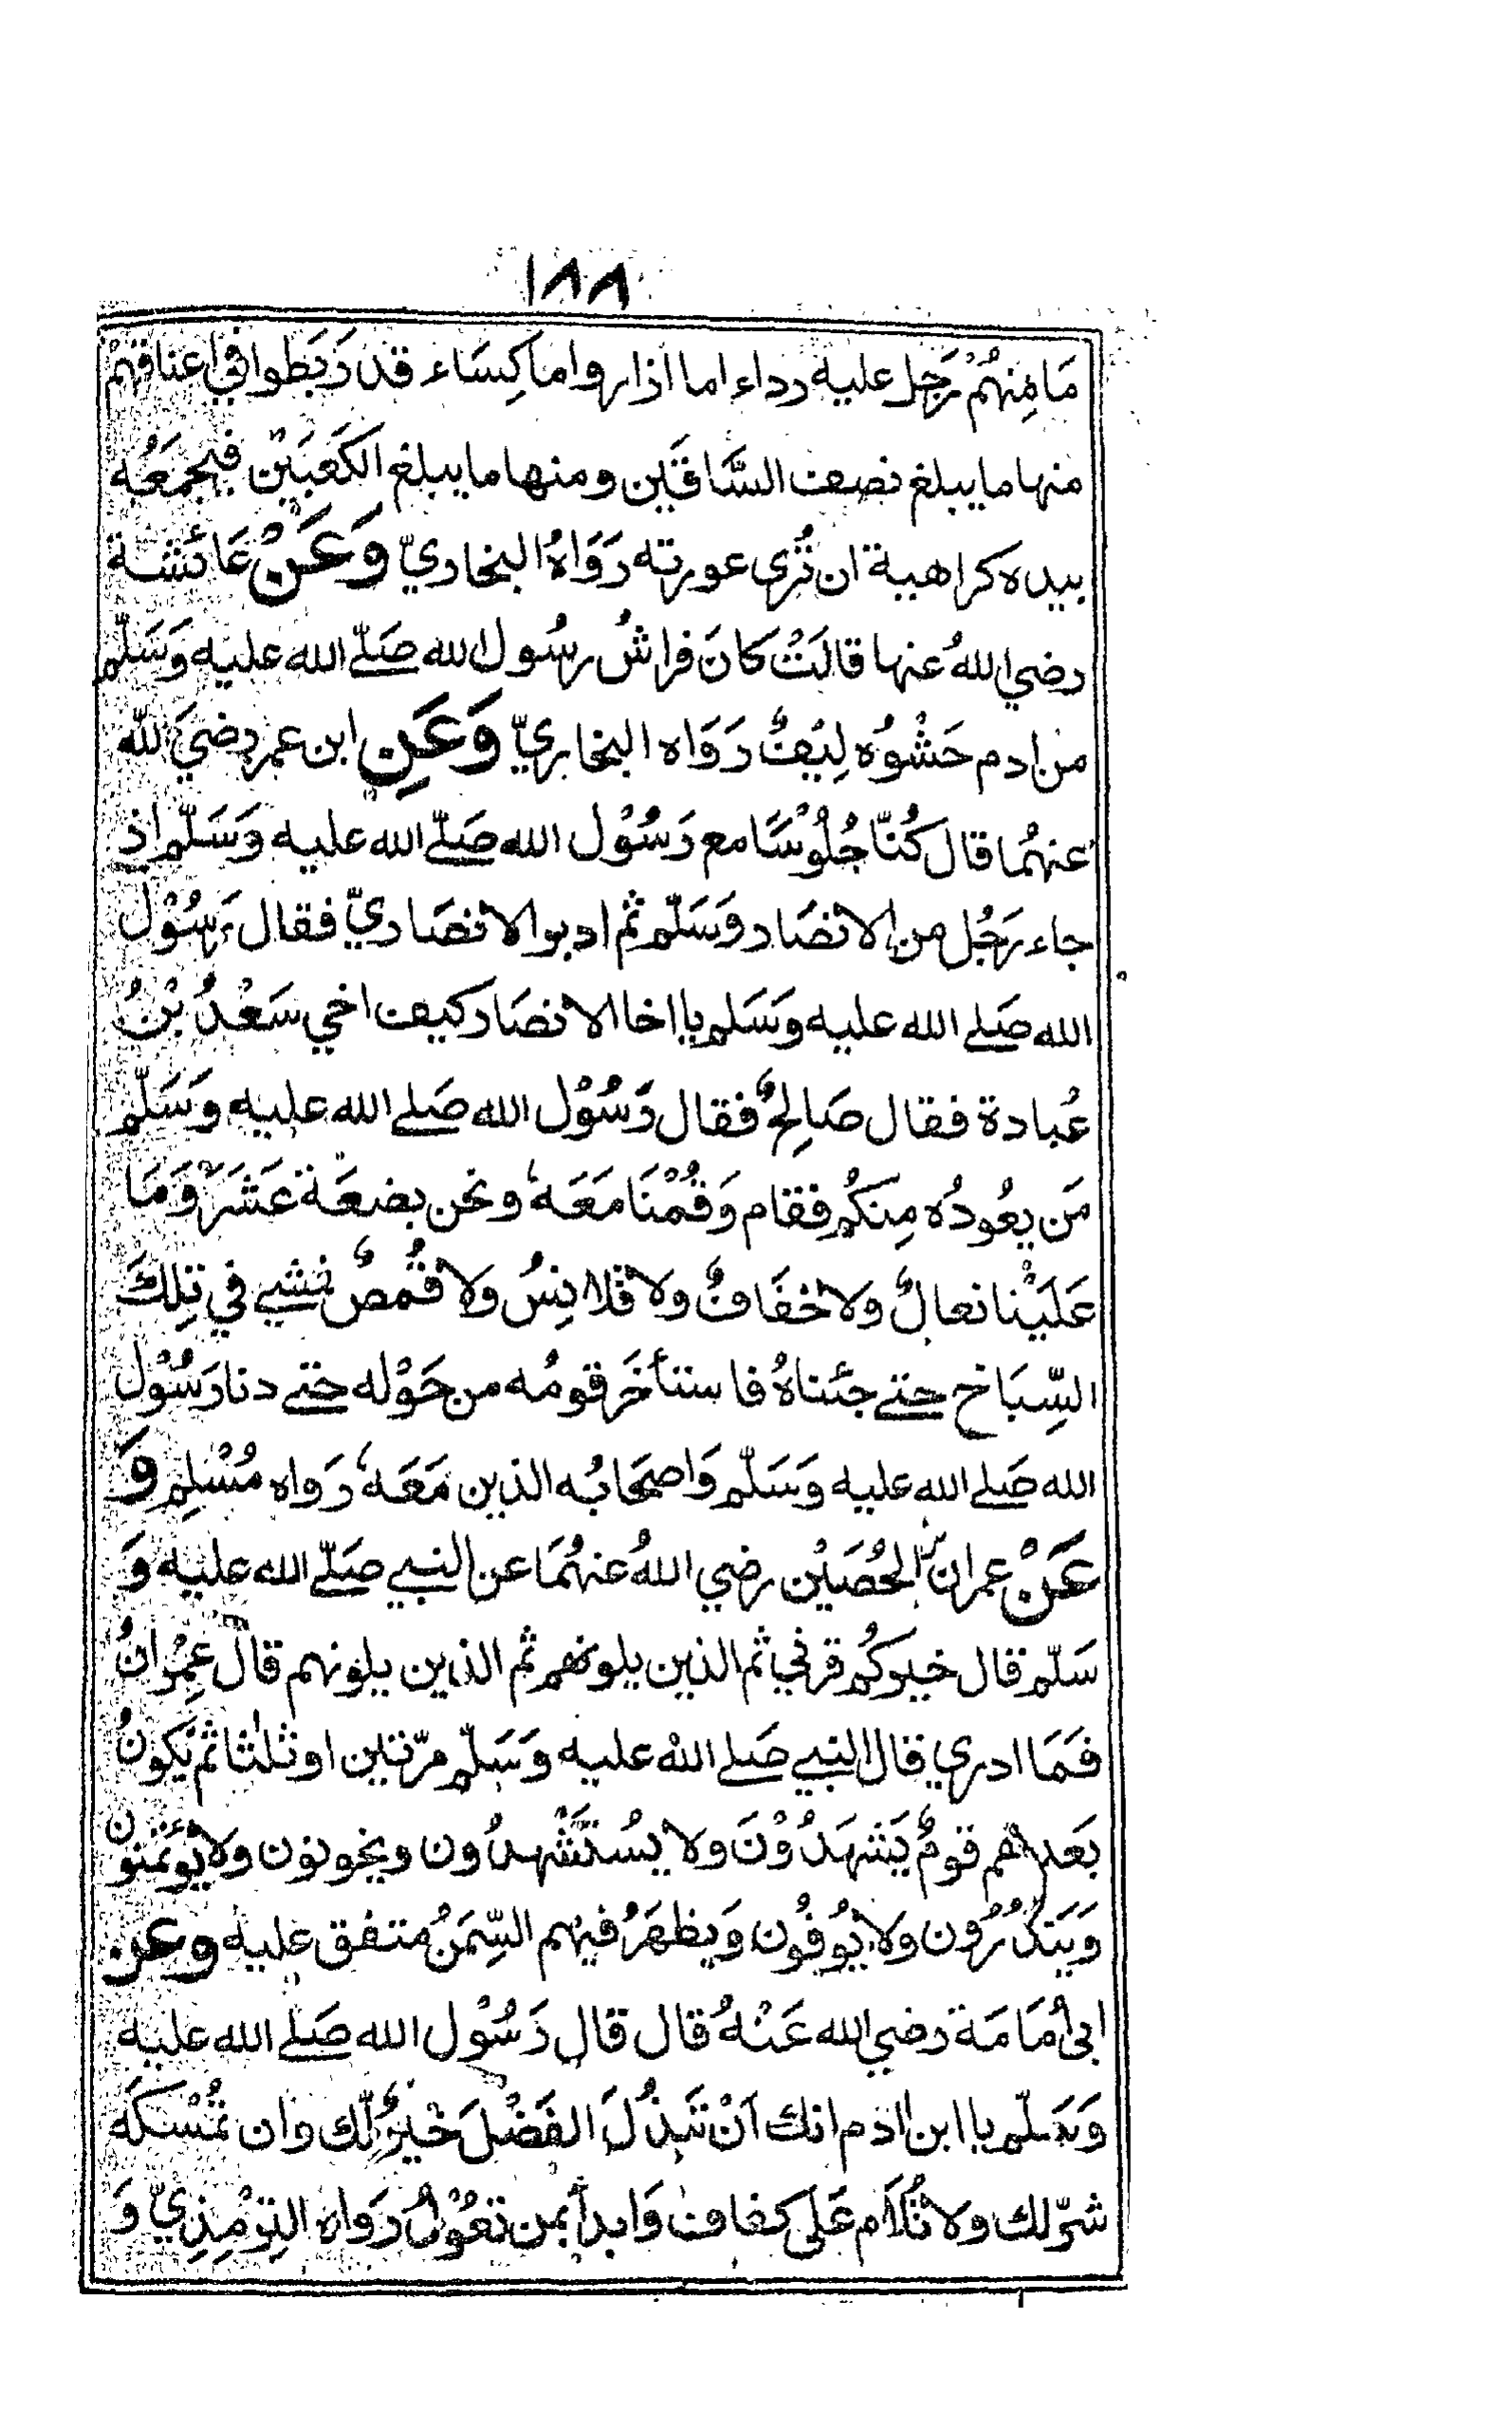 ١٨٨
مَا مِنهُمْ رَجل عليه رداء اما ازار واما كِسَاء قد رَبَطوا في اعناقهمْ
منها ما يبلغ نصف السَّاقَين ومنها ما يبلغ الكَعَبَيْن فيجمَعُه
بيده كراهية ان تُرى عورته رَوَاهُ البخاريّ وَعَنْ عَائشة
رضي اللهُ عنها قالَتْ كانَ فراشُ رسُول الله صَلّى الله عليه وَسَلّم
من ادم حَشْوُه لِيْفٌ رَوَاه البخاريّ وَعَنِ ابن عمر رضيَ الله
عنهُما قال كُنّا جُلُوْسًا مع رَسُوْل الله صَلّى الله عليه وَسَلّم اذ
جاء رَجُل من الانصَار وَسَلّم ثم ادبر الانصَاريّ فقال رَسُوْل
الله صَلى الله عليه وَسَلم يا اخا الانصَار كيف اخي سَعْدُ بْنُ
عُبادة فقال صَالحٌ فقال رَسُوْل الله صَلى الله عليه وَسَلّم
مَن يعُودُه مِنكُم فقام وَقُمْنَا مَعَهُ ونحن بضعَة عَشَرَ وَمَا
عَلَيْنا نعالٌ ولا خفَافٌ ولا قلانِسُ ولا قُمصٌ نمشي في تِلكَ
السِّبَاخ حتى جئناهُ فاستأخَر قومُه من حَوْله حتى دنا رَسُوْل
الله صَلى الله عليه وَسَلّم وَاصحَابُه الذين مَعَهُ رَواه مُسْلِم وَ
عَنْ عمران بن الحُصَيْن رضي اللهُ عنهُمَا عن النبي صَلّى الله عليه وَ
سَلّم قال خيركُم قرني ثم الذين يلونهم ثم الذين يلونهم قال عِمْرانُ
فَمَا ادري قال النبي صَلى اللهُ عليه وَسَلّم مرّتين او ثلٰثا ثم يَكونُ
بَعدهم قومٌ يَشهَدُوْنَ ولا يسُتَشْهدُون ويخونون ولا يُؤتَمنون
وَيَنذُرُون ولا يُوفُون وَيظهَرُ فيهم السِّمَنُ متفق عليه وعن
ابي اُمَامَة رضي الله عَنْهُ قال قال رَسُوْل الله صَلى الله عليه
وَسَلّم يا ابن ادم انك اَنْ تَبذُلَ الفَضْلَ خَيرٌ لّك وان تُمْسكَه
شرّ لك ولا تُلَام عَلى كفاف وَابدأ بمن تعُوْلُ رَواه التِرْمِذِيّ وَ